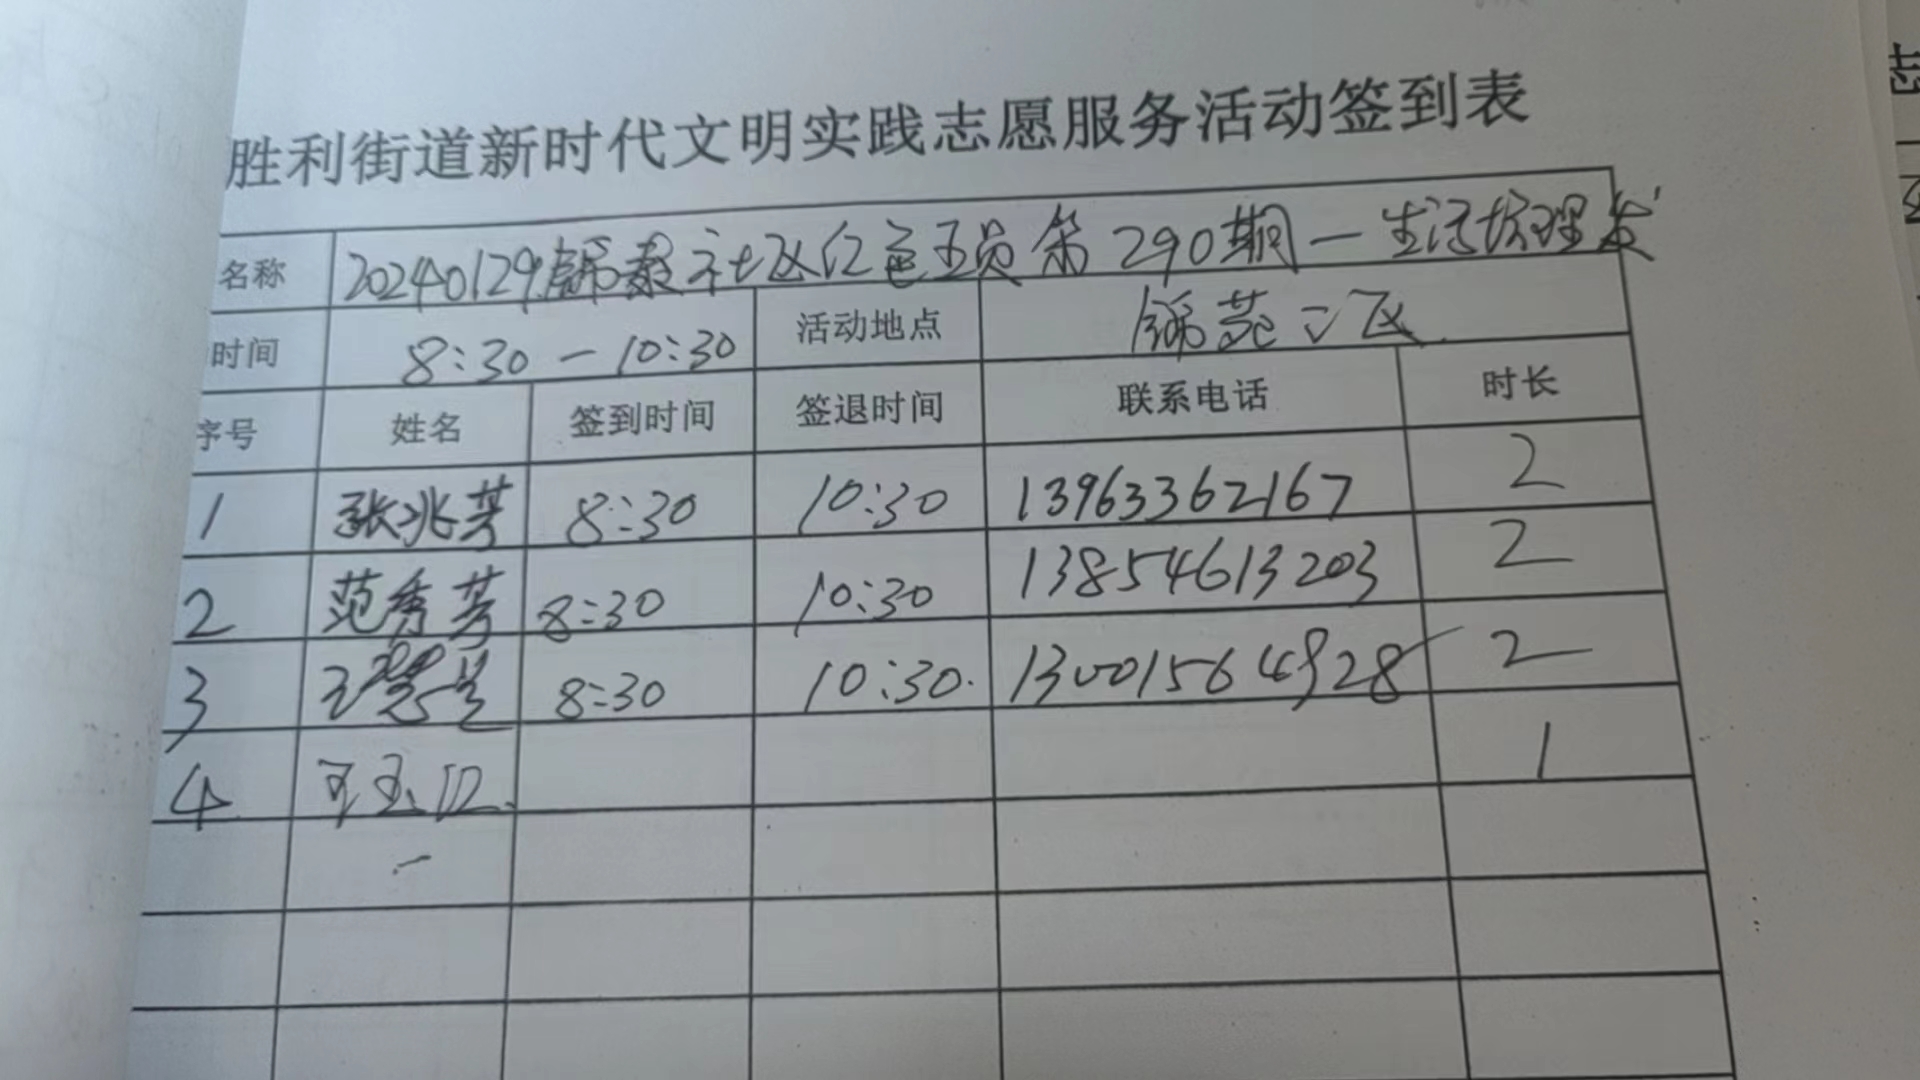 胜利街道新时代文明实践志愿服务活动签到表
名称 20240129锦泰社区红色王员第290期一生活坊理发
时间 8:30一10:30 活动地点 锦苑二区
序号 姓名 签到时间 签退时间 联系电话 时长
1 张兆芳 8:30 10:30 13963362167 2
2 范秀芳 8:30 10:30 13854613203 2
3 8:30 10:30 13001564928 2
4 1